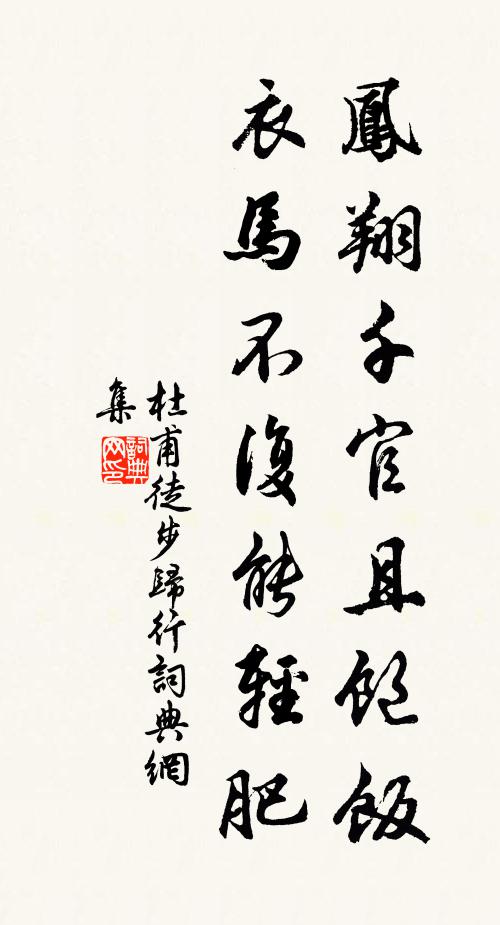 鳳翔千官且飽飯
衣馬不復能輕肥
杜甫徒步歸行詞典網
集
詞典
网印